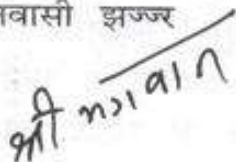 नवासी झज्जर
श्री भगवान